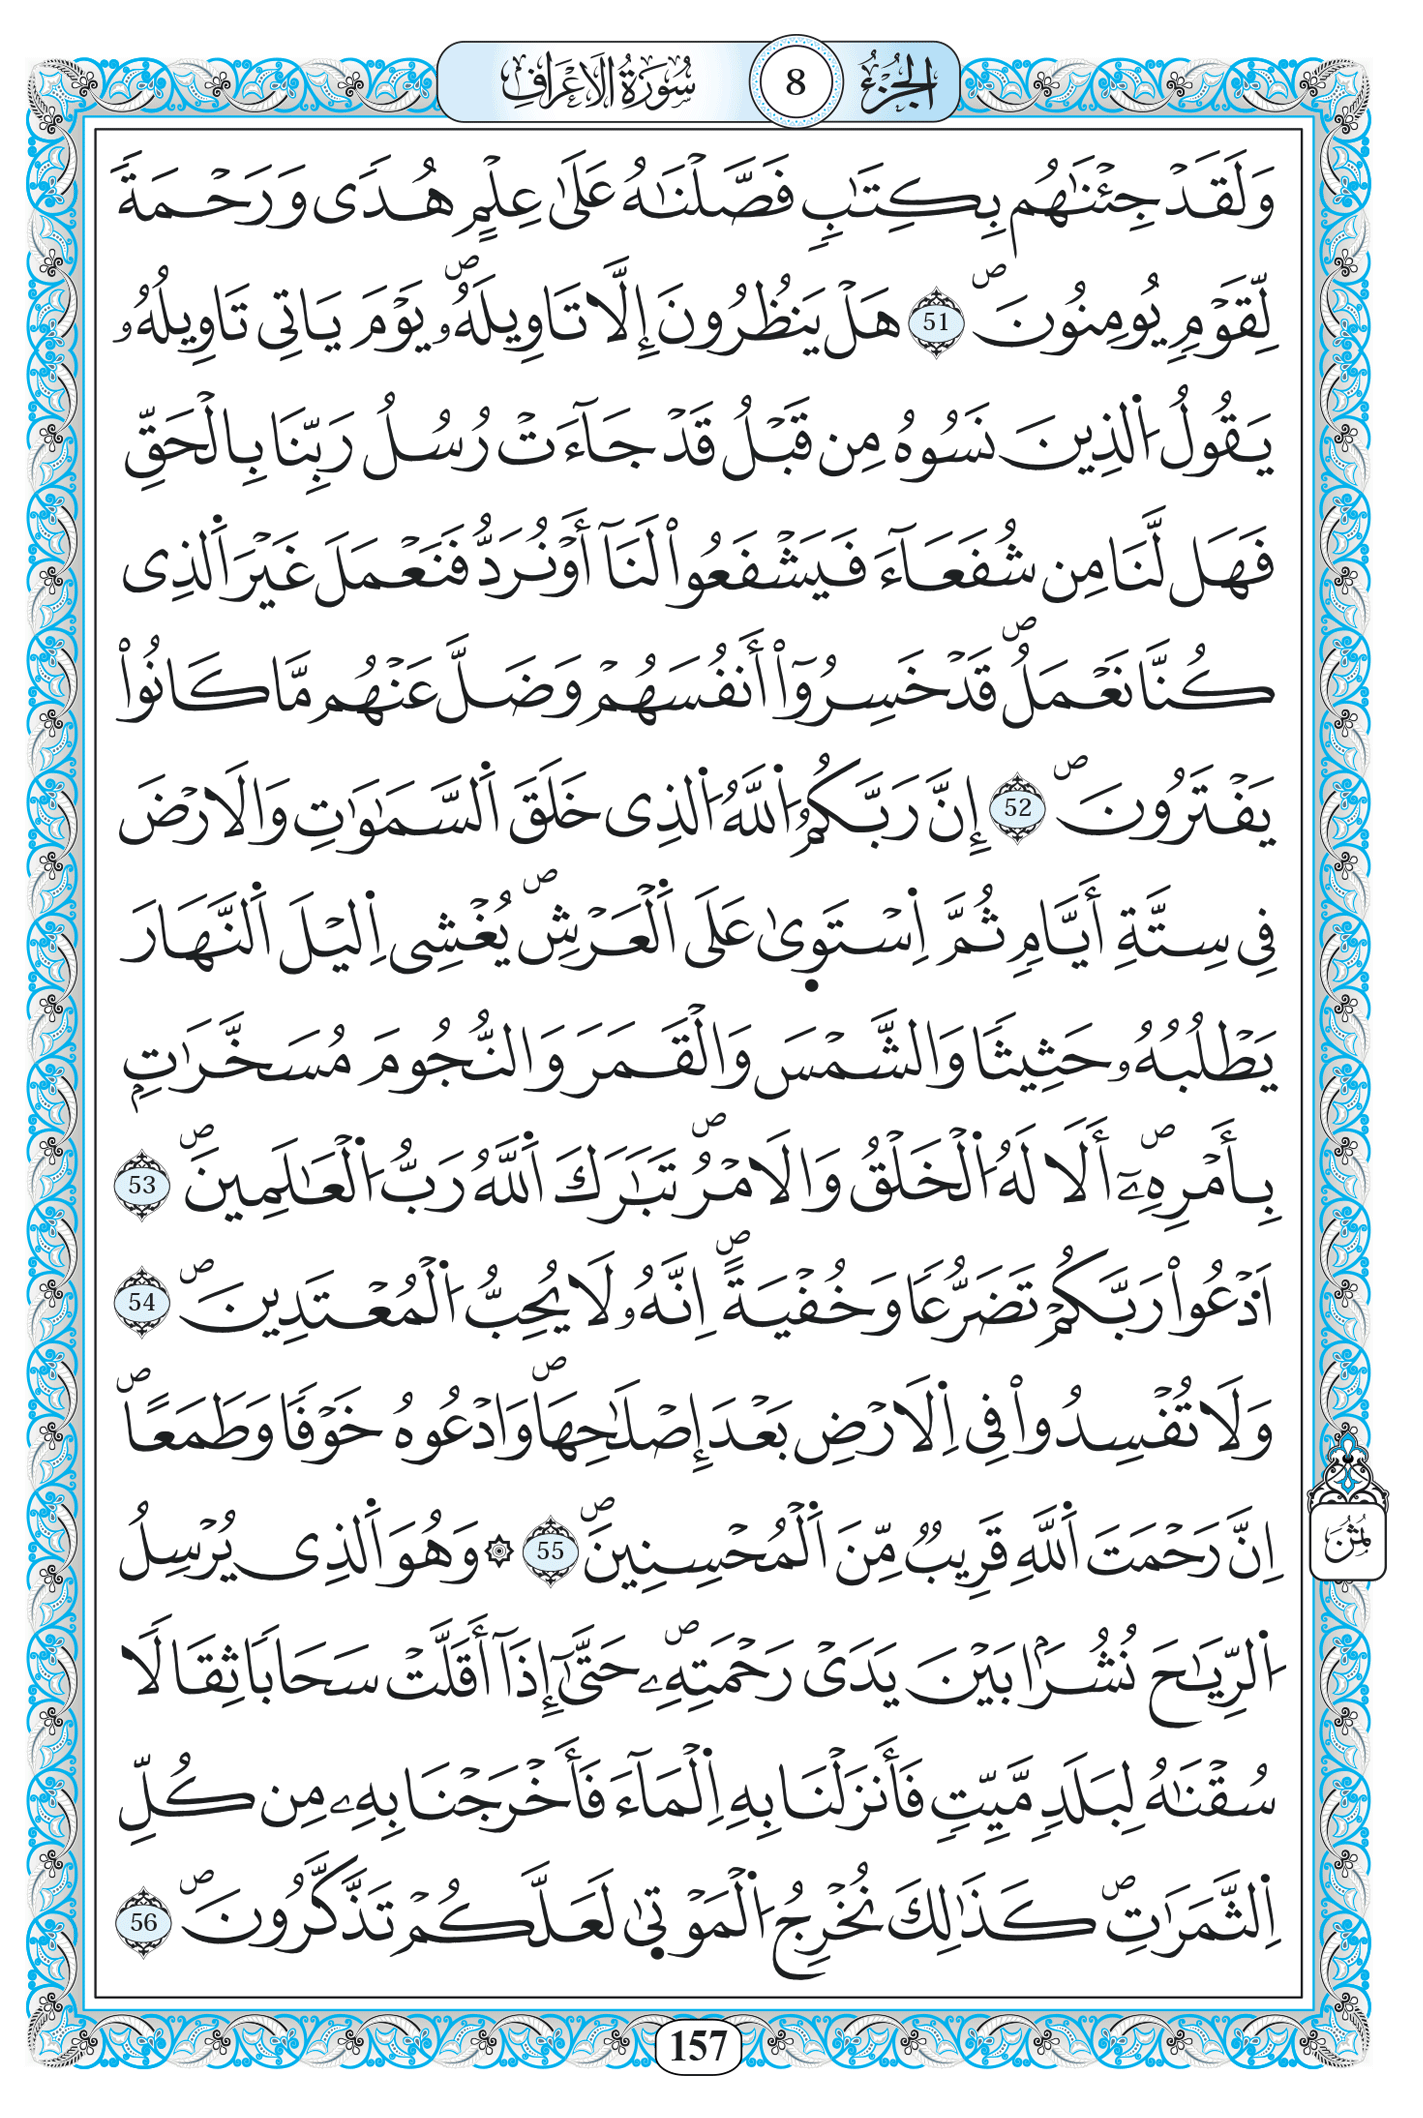 الجزء 8 سورة الاعراف
وَلَقَدْ جِئْنَٰهُم بِكِتَٰبٖ فَصَّلْنَٰهُ عَلَىٰ عِلْمٍ هُدىٗ وَرَحْمَةٗ
لِّقَوْمٖ يُومِنُونَۖ 51 هَلْ يَنظُرُونَ إِلَّا تَاوِيلَهُۥۖ يَوْمَ يَاتِے تَاوِيلُهُۥ
يَقُولُ اُ۬لذِينَ نَسُوهُ مِن قَبْلُ قَدْ جَآءَتْ رُسُلُ رَبِّنَا بِالْحَقِّ
فَهَل لَّنَا مِن شُفَعَآءَ فَيَشْفَعُواْ لَنَآ أَوْ نُرَدُّ فَنَعْمَلَ غَيْرَ اَ۬لذِے
كُنَّا نَعْمَلُۖ قَدْ خَسِرُوٓاْ أَنفُسَهُمْ وَضَلَّ عَنْهُم مَّا كَانُواْ
يَفْتَرُونَۖ 52 إِنَّ رَبَّكُمُ اُ۬للَّهُ اُ۬لذِے خَلَقَ اَ۬لسَّمَٰوَٰتِ وَالَارْضَ
فِے سِتَّةِ أَيَّامٖ ثُمَّ اَ۪سْتَوَىٰ عَلَى اَ۬لْعَرْشِۖ يُغْشِے اِ۬ليْلَ اَ۬لنَّهَارَ
يَطْلُبُهُۥ حَثِيثاٗ وَالشَّمْسَ وَالْقَمَرَ وَالنُّجُومَ مُسَخَّرَٰتِۢ
بِأَمْرِهِۦٓۖ أَلَا لَهُ اُ۬لْخَلْقُ وَالَامْرُۖ تَبَٰرَكَ اَ۬للَّهُ رَبُّ اُ۬لْعَٰلَمِينَۖ 53
اَ۟دْعُواْ رَبَّكُمْ تَضَرُّعاٗ وَخُفْيَةًۖ اِنَّهُۥ لَا يُحِبُّ اُ۬لْمُعْتَدِينَۖ 54
وَلَا تُفْسِدُواْ فِے اِ۬لَارْضِ بَعْدَ إِصْلَٰحِهَاۖ وَادْعُوهُ خَوْفاٗ وَطَمَعاًۖ
اِنَّ رَحْمَتَ اَ۬للَّهِ قَرِيبٞ مِّنَ اَ۬لْمُحْسِنِينَۖ 55 ۞ وَهُوَ اَ۬لذِے يُرْسِلُ
ثُمُن
اُ۬لرِّيَٰحَ نُشُراَۢ بَيْنَ يَدَےْ رَحْمَتِهِۦۖ حَتَّىٰٓ إِذَآ أَقَلَّتْ سَحَاباٗ ثِقَالاٗ
سُقْنَٰهُ لِبَلَدٖ مَّيِّتٖ فَأَنزَلْنَا بِهِ اِ۬لْمَآءَ فَأَخْرَجْنَا بِهِۦ مِن كُلِّ
اِ۬لثَّمَرَٰتِۖ كَذَٰلِكَ نُخْرِجُ اُ۬لْمَوْتَىٰ لَعَلَّكُمْ تَذَّكَّرُونَۖ 56
157